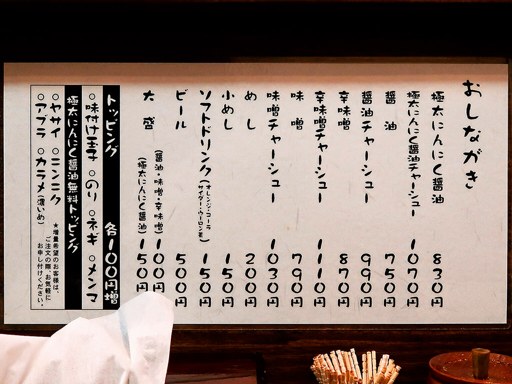 おしながき
極太にんにく醤油 830円
極太にんにく醤油チャーシュー 1070円
醤油 750円
醤油チャーシュー 990円
辛味噌 870円
辛味噌チャーシュー 1110円
味噌 790円
味噌チャーシュー 1030円
めし 200円
小めし 150円
ソフトドリンク(オレンジ・コーラ サイダー・ウーロン茶) 150円
ビール 500円
大盛 (醤油・味噌・辛味噌) 100円
(極太にんにく醤油) 150円
トッピング 各100円増
○味付け玉子 ○のり ○ネギ ○メンマ
極太にんにく醤油無料トッピング
○ヤサイ ○ニンニク
○アブラ ○カラメ(濃いめ)
★増量希望のお客様は、
ご注文の際、お気軽に
お申し付けください。